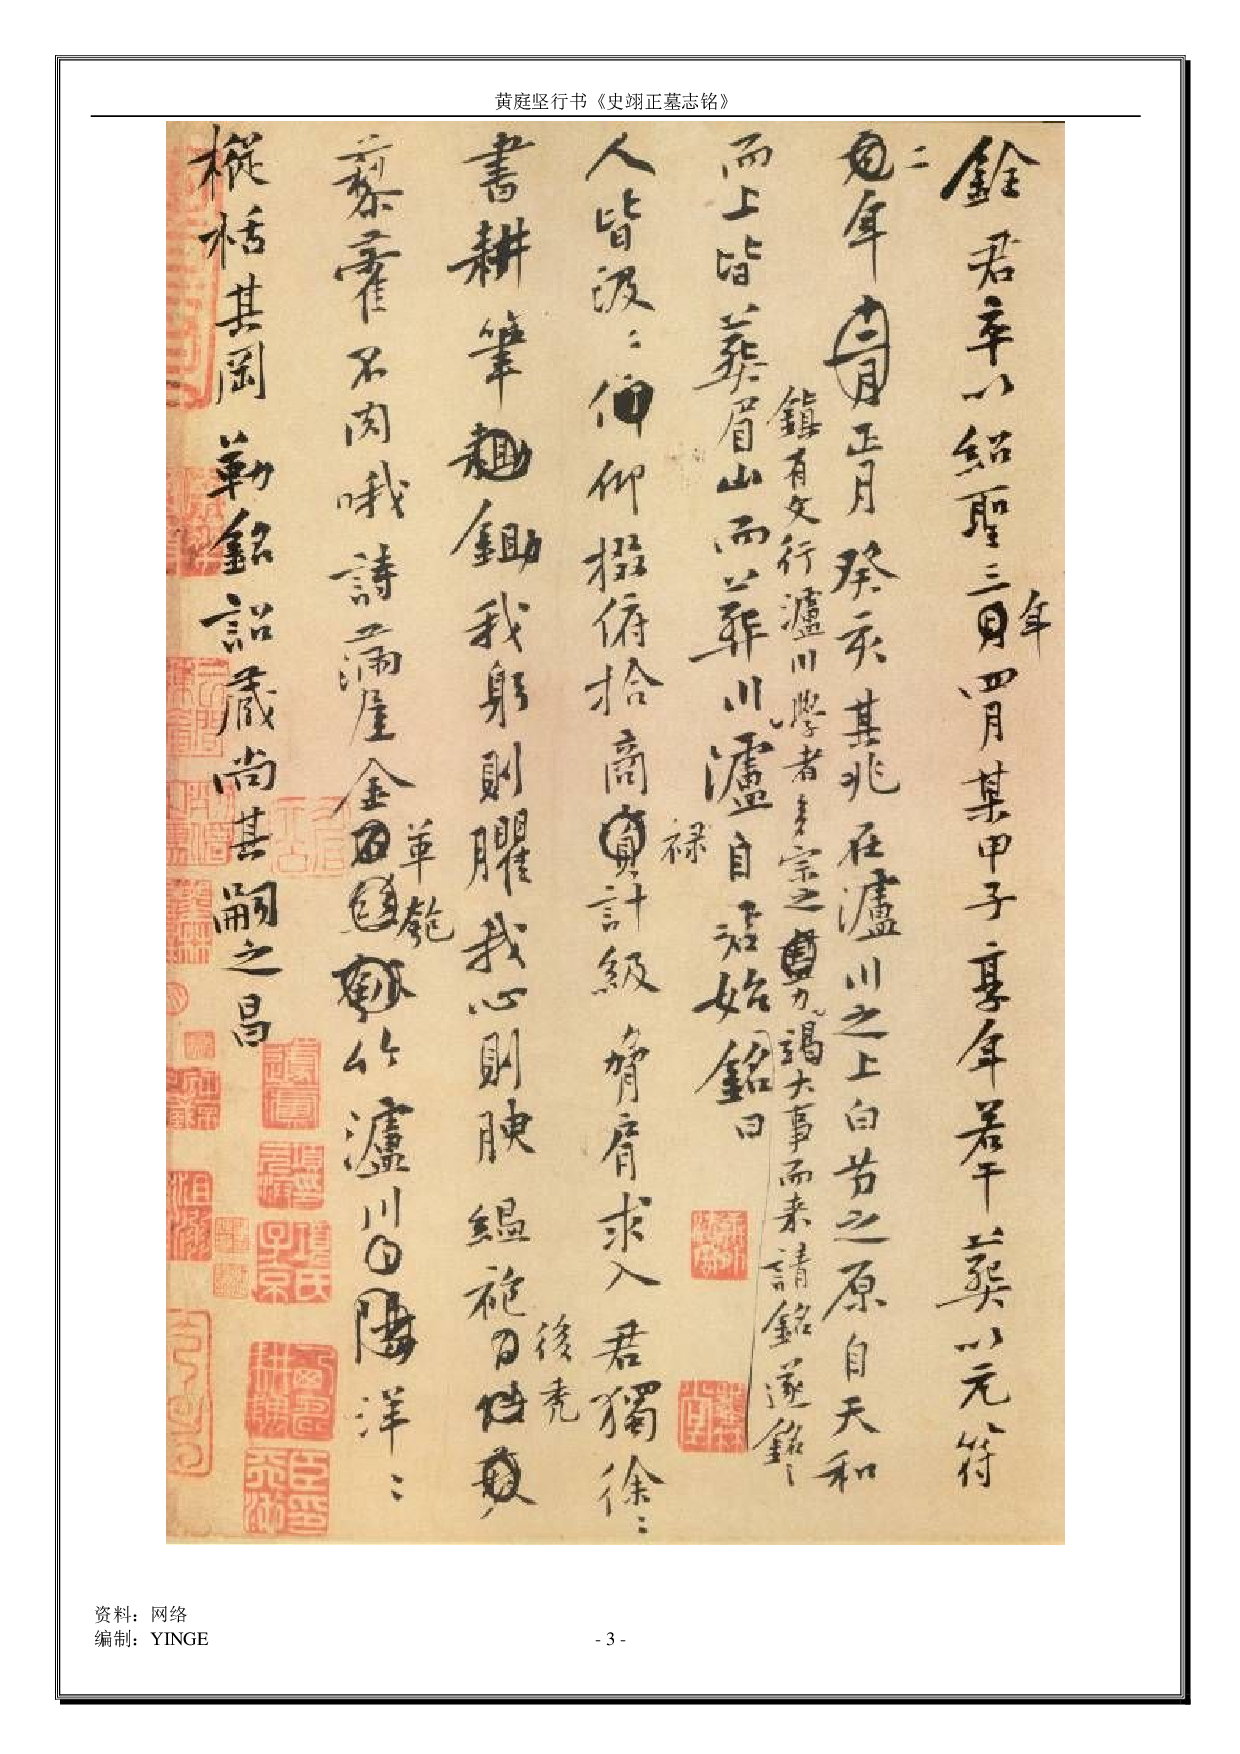 黄庭坚行书《史翊正墓志铭》
銓君卒以紹聖三年四月某甲子享年若干葬以元符
二年正月癸亥其兆在瀘川之上白芀之原自天和
鎮有文行瀘川學者多宗之勇力謁大事而来請銘遂銘之
而上皆葬眉山而葬川瀘自詁始銘曰
人皆汲〻仰掇俯拾商禄計級脅肩求入君獨徐〻
書耕筆耡我躬則臞我心則腴緼袍後禿
藜藿不肉哦詩滿屋金革匏竹瀘川洋〻
樅栝其岡勒銘詔藏尚其嗣之昌
资料：网络
编制：YINGE
- 3 -